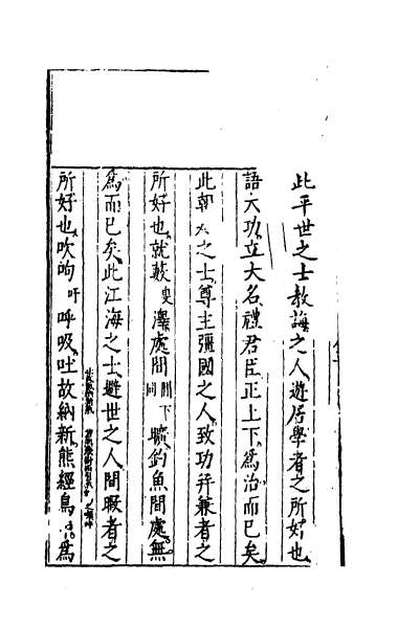 此平世之士教誨之人遊居學者之所好也
語大功立大名禮君臣正上下爲治而已矣
此朝之士尊主彊國之人致功并兼者之
所好也就藪叟澤處間閒下同曠釣魚間處無
爲而已矣此江海之士避世之人間暇者之
所好也吹呴吁呼吸吐故納新熊經鳥爲